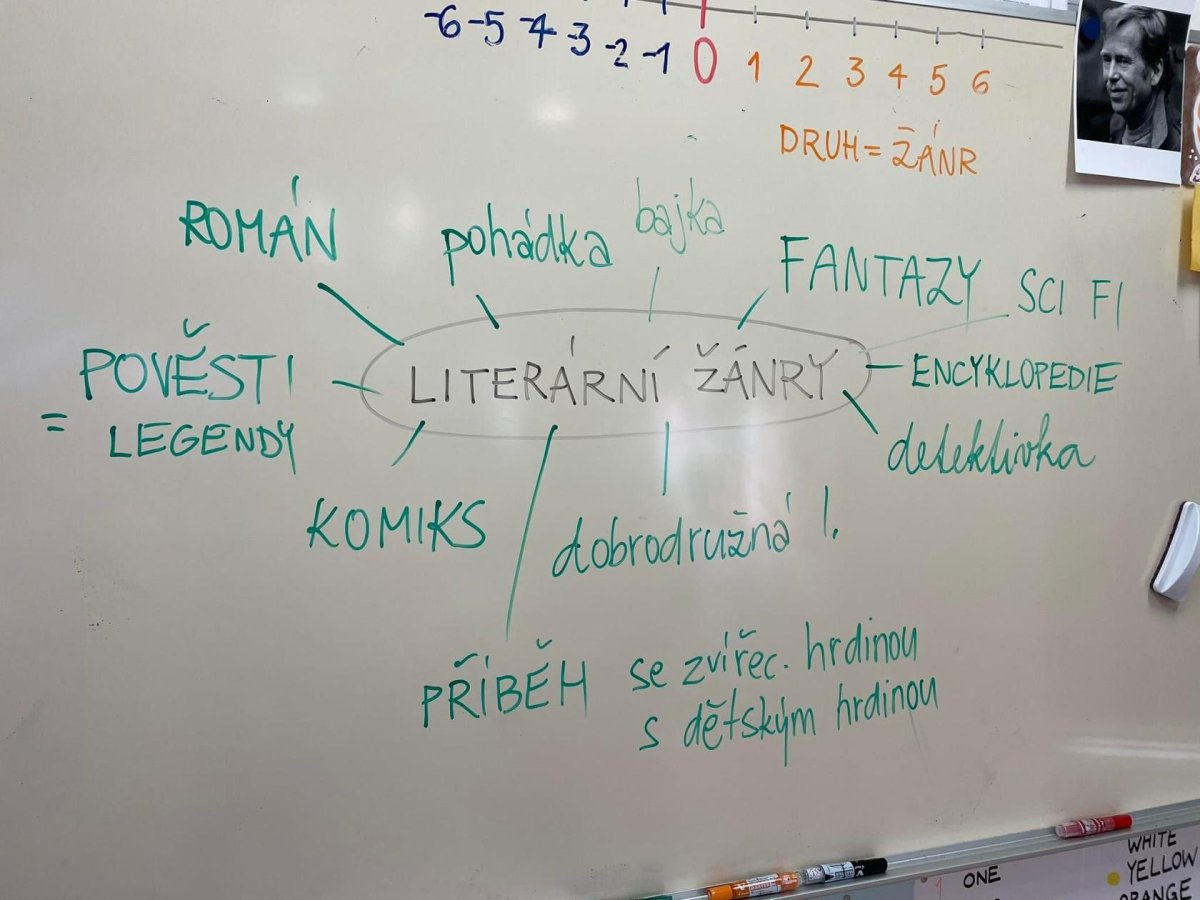 -6 -5 -4 -3 -2 -1 0 1 2 3 4 5 6
DRUH = ŽÁNR
ROMÁN
pohádka
bajka
FANTAZY
SCI FI
LITERÁRNÍ ŽÁNRY
POVĚSTI
= LEGENDY
ENCYKLOPEDIE
detektivka
KOMIKS
dobrodružná l.
PŘÍBĚH se zvířec. hrdinou
s dětským hrdinou
WHITE
ONE
YELLOW
ORANGE